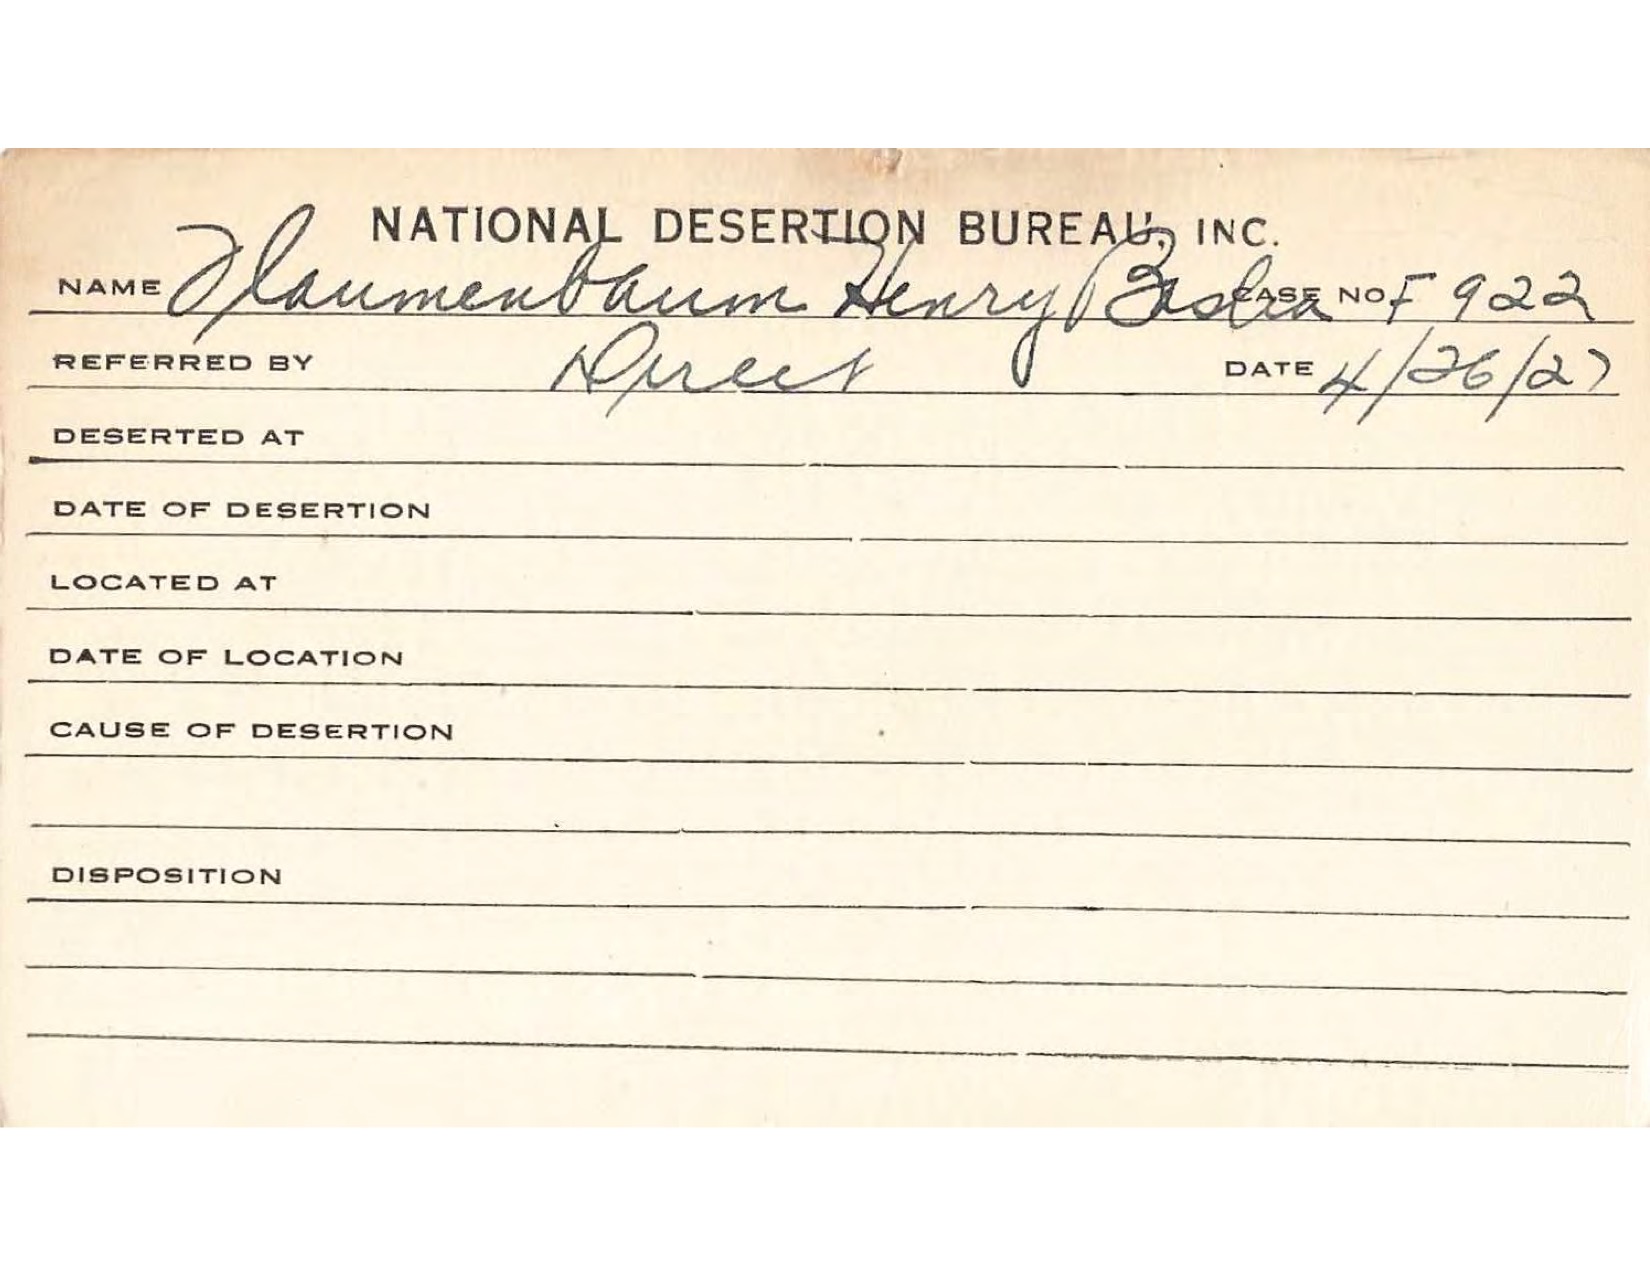 NATIONAL DESERTION BUREAU, INC.
NAME Flaumenbaum Henry CASE NO. F 922
REFERRED BY Direct DATE 4/26/27
DESERTED AT
DATE OF DESERTION
LOCATED AT
DATE OF LOCATION
CAUSE OF DESERTION
DISPOSITION